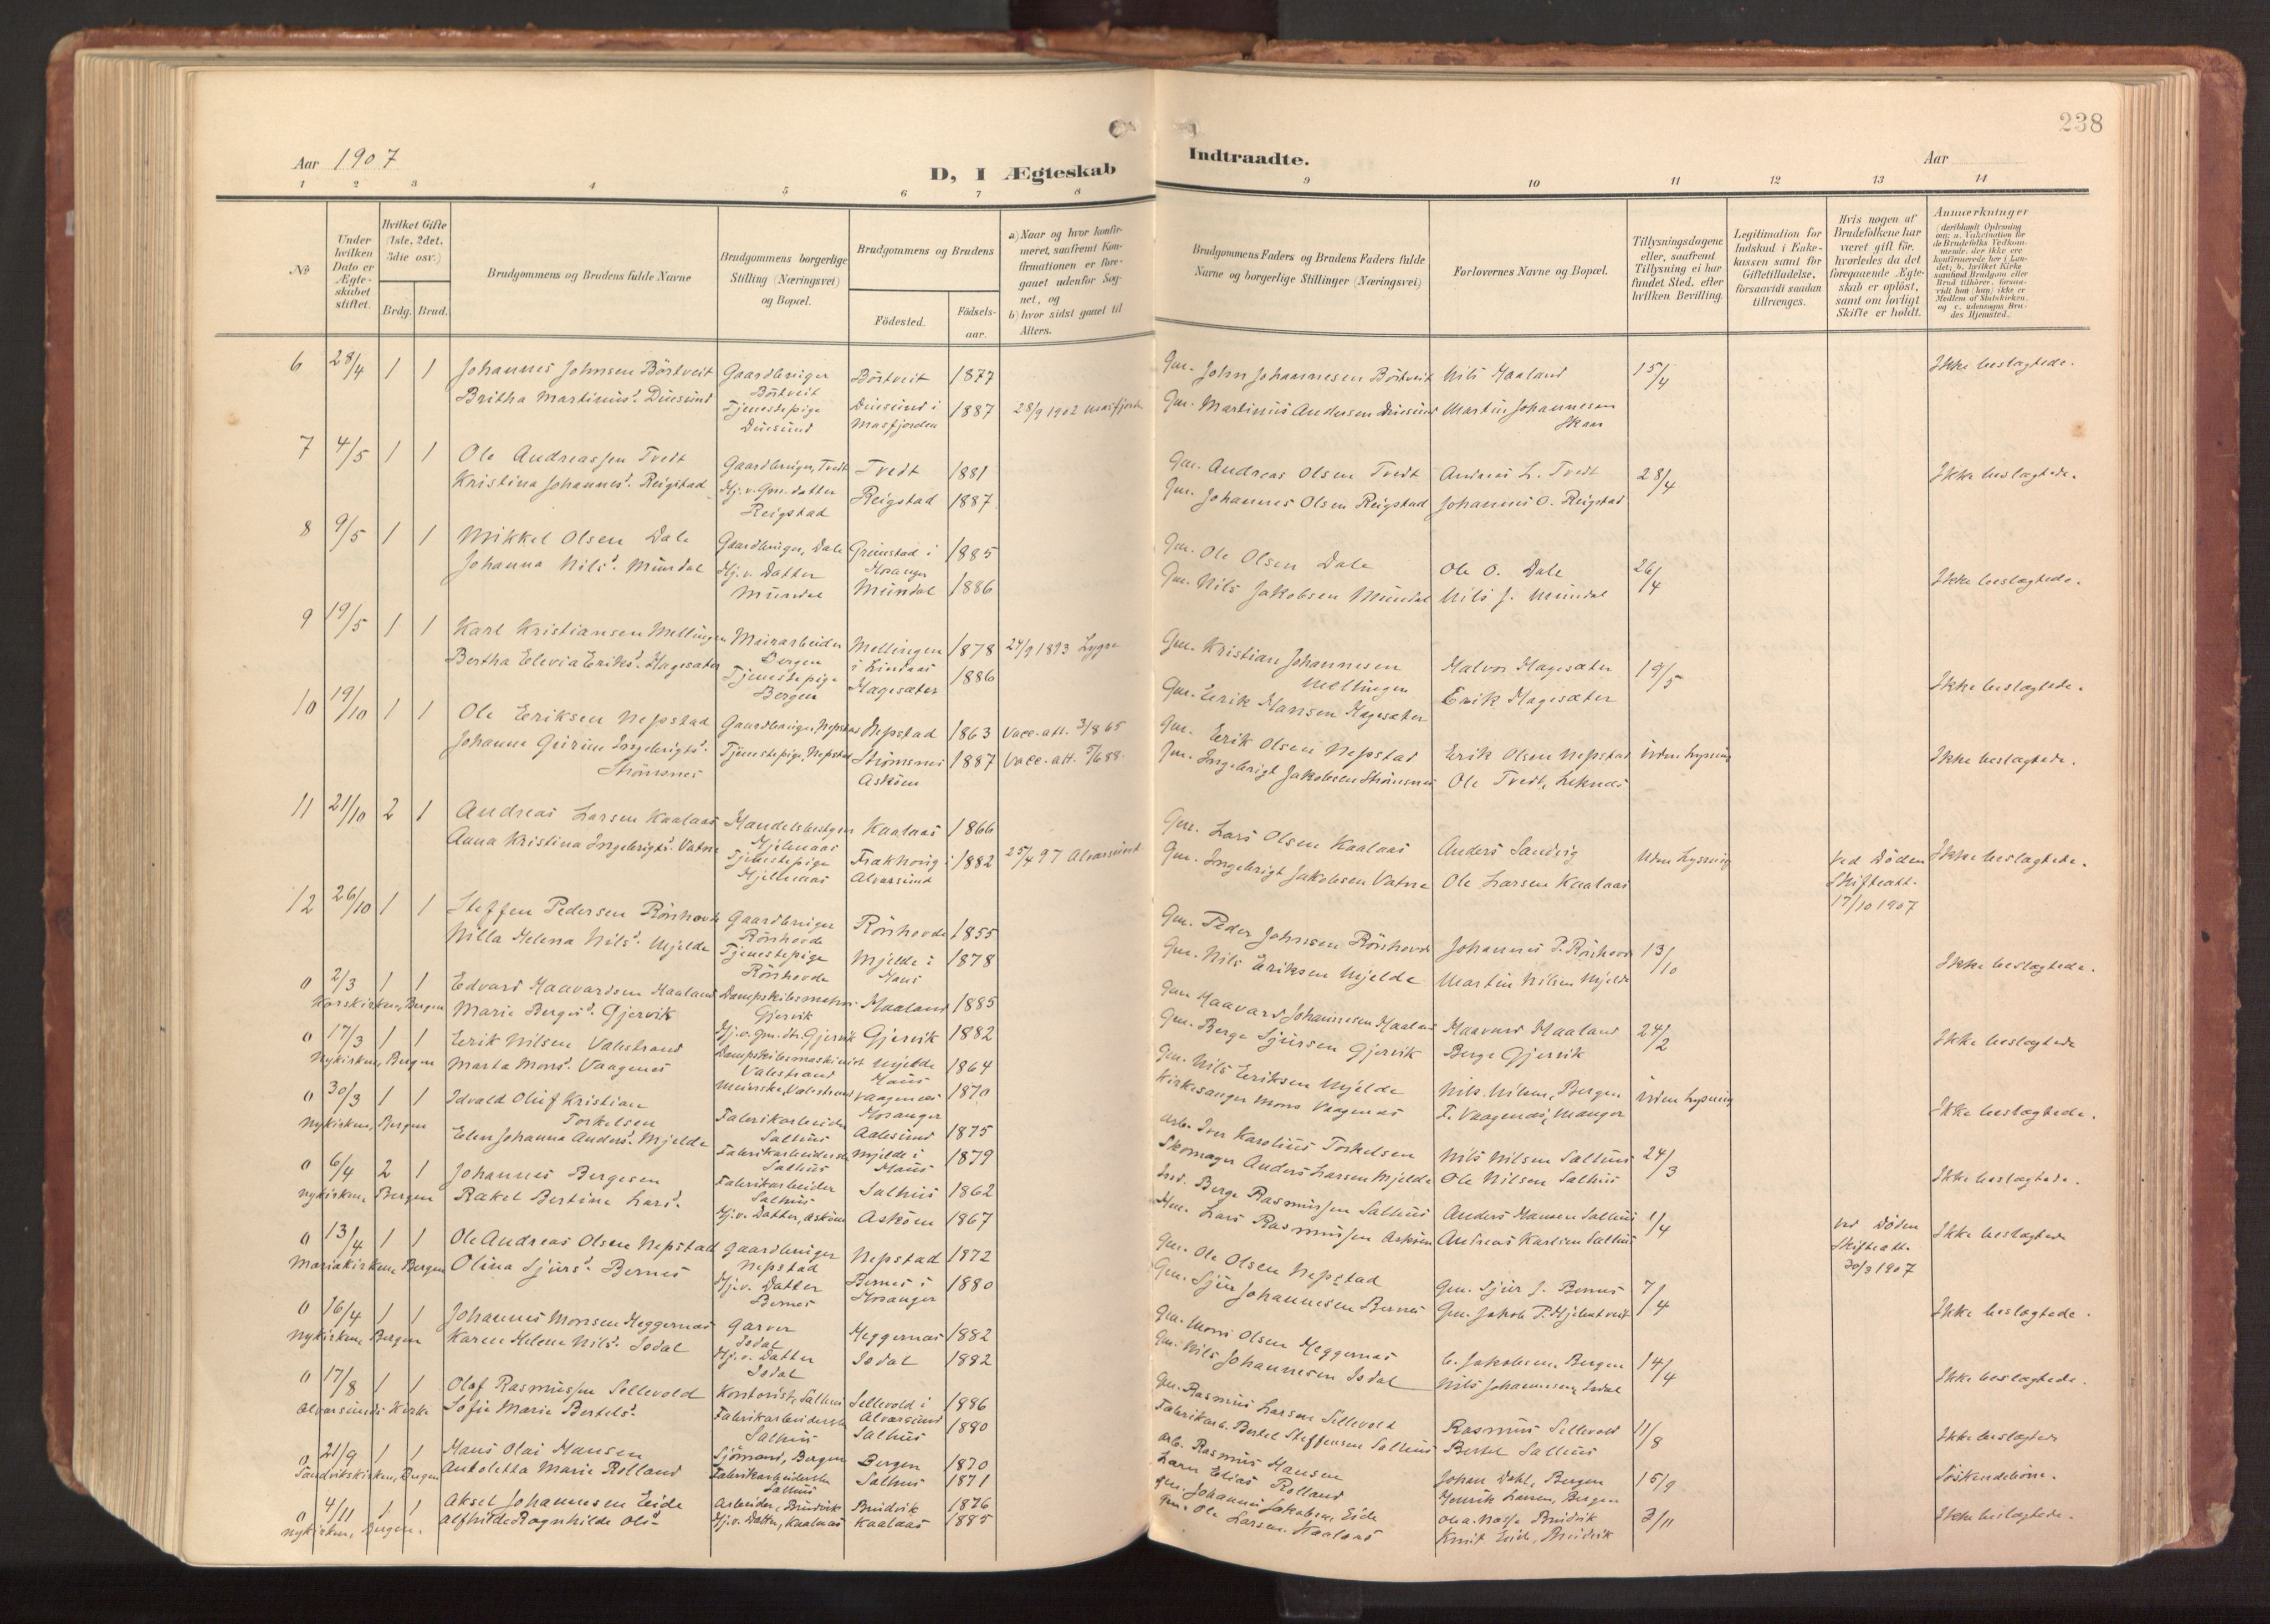 238
Aar 1907
D, I Ægteskab
Indtraadte.
Aar
1 2 3 4 5 6 7 8 9 10 11 12 13 14
No
Under hvilken Dato er Ægteskabet stiftet.
Hvilket Gifte (1ste, 2det, 3die osv.)
Brdg. Brud.
Brudgommens og Brudens fulde Navne
Brudgommens borgerlige Stilling (Næringsvei) og Bopæl.
Brudgommens og Brudens
Födested.
Födsels-aar.
a) Naar og hvor konfirmeret, saafremt Konfirmationen er foregaaet udenfor Sognet, og
b) hvor sidst gaaet til Alters.
Brudgommens Faders og Brudens Faders fulde Navne og borgerlige Stillinger (Næringsvei)
Forlovernes Navne og Bopæl.
Tillysningsdagene eller, saafremt Tillysning ei har fundet Sted, efter hvilken Bevilling.
Legitimation for Indskud i Enkekassen samt for Giftetilladelse, forsaavidt saadan tiltrænges.
Hvis nogen af Brudefolkene har været gift før, hvorledes da det foregaaende Ægteskab er oplöst, samt om lovligt Skifte er holdt.
Anmerkninger (deriblandt Oplysning om: a. Vaksination for de Brudefolks Vedkommende, der ikke ere konfirmerede her i Landet; b. hvilket Kirkesamfund Brudgom eller Brud tilhörer, forsaavidt han (hun) ikke er Medlem af Statskirken, og c. udensogns Brudes Hjemsted.)
6 28/4 1 1 Johannes Johnsen Börtveit Gaardbruger Börtveit Börtveit 1877 Gm. John Johannesen Börtveit Nils Haaland 15/4 Ikke beslægtede.
Britha Martinusd. Duesund Tjenestepige Duesund Duesund i Masfjorden 1887 28/9 1902 Masfjorden Gm. Martinus Andersen Duesund Martin Johannesen Skaar
7 4/5 1 1 Ole Andreassen Tvedt Gaardbruger, Tvedt Tvedt 1881 Gm. Andreas Olsen Tvedt Anders L. Tvedt 28/4 Ikke beslægtede.
Kristina Johannesd. Reigstad Hj.v. Gm. datter Reigstad Reigstad 1887 Gm. Johannes Olsen Reigstad Johannes O. Reigstad
8 9/5 1 1 Mikkel Olsen Dale Gaardbruger, Dale Grimstad i Hosanger 1885 Gm. Ole Olsen Dale Ole O. Dale 26/4 Ikke beslægtede.
Johanna Nilsd. Mundal Hj.v. Datter Mundal Mundal 1886 Gm. Nils Jakobsen Mundal Nils J. Mundal
9 19/5 1 1 Karl Kristiansen Mellingen Murarbeider Bergen Mellingen i Lindaas 1878 24/9 1893 Lygre Gm. Kristian Johannesen Mellingen Halvor Hagesæter 19/5 Ikke beslægtede.
Bertha Elevia Eriksd. Hagesæter Tjenestepige Bergen Hagesæter 1886 Gm. Eirik Hansen Hagesæter Erik Hagesæter
10 19/10 1 1 Ole Eriksen Nepstad Gaardbruger, Nepstad Nepstad 1863 Vacc.att. 3/8 65 Gm. Erik Olsen Nepstad Erik Olsen Nepstad Uden Lysning Ikke beslægtede.
Johanna Gurine Ingebrigtsd. Strömsnes Tjenestepige, Nepstad Strömsnes Asköen 1887 Vacc.att. 5/6 88. Gm. Ingebrigt Jakobsen Strömsnes Ole Tvedt, Leknes
11 21/10 2 1 Andreas Larsen Kaalaas Handelsbestyrer Hjelmaas Kaalaas 1866 Gm. Lars Olsen Kaalaas Anders Sandvig Uden Lysning Ved Döden Skifteatt. 17/10 1907 Ikke beslægtede.
Anna Kristina Ingebrigtsd. Vatne Tjenestepige Hjelmaas Frakhovig i Alversund 1882 25/4 97 Alversund Gm. Ingebrigt Jakobsen Vatne Ole Larsen Kaalaas
12 26/10 1 1 Steffen Pedersen Rönhovde Gaardbruger Rönhovde Rönhovde 1855 Gm. Peder Johnsen Rönhovde Johannes P. Rönhovde 13/10 Ikke beslægtede.
Nilla Helena Nilsd. Mjelde Tjenestepige Rönhovde Mjelde i Haus 1878 Gm. Nils Eriksen Mjelde Martin Nilsen Mjelde
0 2/3 1 1 Edvard Haavardsen Haaland Dampskibsmatros Gjervik Haaland 1885 Gm. Haavard Johannesen Haaland Haavard Haaland 24/2 Ikke beslægtede
Korskirken, Bergen Marie Bergesd. Gjervik Hj.v. Gm. dtr. Gjervik Gjervik 1882 Gm. Berge Sjursen Gjervik Berge Gjervik
0 17/3 1 1 Erik Nilsen Valestrand Dampskibsmaskinist Valestrand Mjelde Haus 1864 Gm. Nils Eriksen Mjelde Nils Nilsen, Bergen Uden Lysning Ikke beslægtede.
Nykirken, Bergen Marta Monsd. Vaagenes Meierske, Valestrand Vaagenes Hosanger 1870 Kirkesanger Mons Vaagenes F. Vaagenes, Manger
0 30/3 1 1 Edvald Oluf Kristian Torkelsen Fabrikarbeider Salhus Aalesund 1875 Arb. Iver Karolius Torkelsen Nils Nilsen Salhus 24/3 Ikke beslægtede.
Nykirken, Bergen Elen Johanna Andersd. Mjelde Fabrikarbeiderske Salhus Mjelde i Haus 1879 Skomager Anders Larsen Mjelde Ole Nilsen Salhus
0 6/4 2 1 Johannes Bergesen Fabrikarbeider Salhus Salhus 1862 Ind. Berge Rasmussen Salhus Anders Hansen Salhus 1/4 Ved Döden Skifteatt. 30/3 1907 Ikke beslægtede
Nykirken Bergen Rakel Bertine Larsd. Hj.v. Datter, Asköen Asköen 1867 Hm. Lars Rasmussen Asköen Andreas Karlsen Salhus
0 13/4 1 1 Ole Andreas Olsen Nepstad Gaardbruger Nepstad Nepstad 1872 Gm. Ole Olsen Nepstad Gm. Sjur J. Bernes 7/4 Ikke beslægtede.
Mariakirken Bergen Olina Sjursd. Bernes Hj.v. Datter Bernes Bernes i Hosanger 1880 Gm. Sjur Johannesen Bernes Gm. Jakob P. Hjelmtveit
0 16/4 1 1 Johannes Monsen Heggernæs Garver Isdal Heggernæs 1882 Gm. Mons Olsen Heggernæs Jakobsen, Bergen 14/4 Ikke beslægtede.
Nykirken Bergen Karen Helene Nilsd. Isdal Hj.v. Datter Isdal Isdal 1882 Gm. Nils Johannesen Isdal Nils Johannesen, Isdal
0 17/8 1 1 Olaf Rasmussen Sellevold Kontorist, Salhus Sellevold i Alversund 1886 Gm. Rasmus Larsen Sellevold Rasmus Sellevold 11/8 Ikke beslægtede
Alversunds Kirke Sofie Marie Bertelsd. Fabrikarbeiderske Salhus Salhus 1890 Fabrikarb. Bertel Steffensen Salhus Bertel Salhus
0 21/9 1 1 Hans Olai Hansen Sjömand, Bergen Bergen 1870 Arb. Rasmus Hansen Johan Dahl, Bergen 15/9 Söskendebörn.
Sandvikskirken, Bergen Antoletta Marie Rolland Fabrikarbeiderske Salhus Salhus 1871 Elias Rolland Henrik Larsen, Bergen
0 4/11 1 1 Aksel Johannesen Eide Arbeider, Bruvik Bruvik 1876 Gm. Johannes Jakobsen Eide Bruvik 3/11 Ikke beslægtede.
Nykirken, Bergen. Alfhilde Ragnhilde Olsd. Hj.v. Datter, Kaalaas Kaalaas 1885 Gm. Ole Larsen Kaalaas Knut Eide, Bruvik